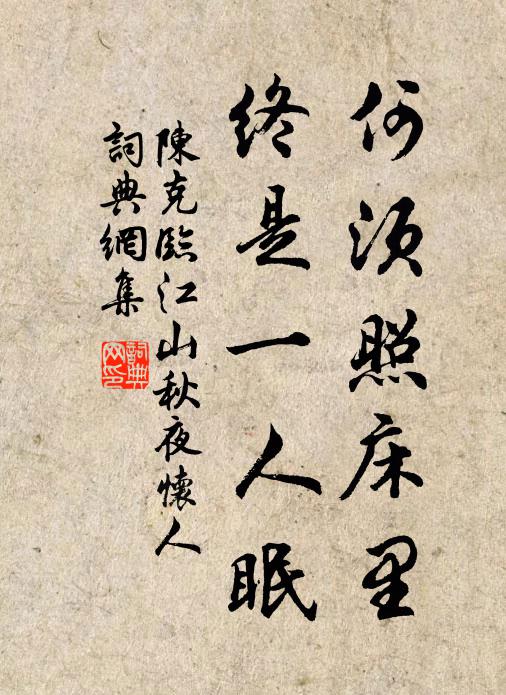 何須照床里
終是一人眠
陳克臨江山秋夜懷人
詞典網集
詞典网印